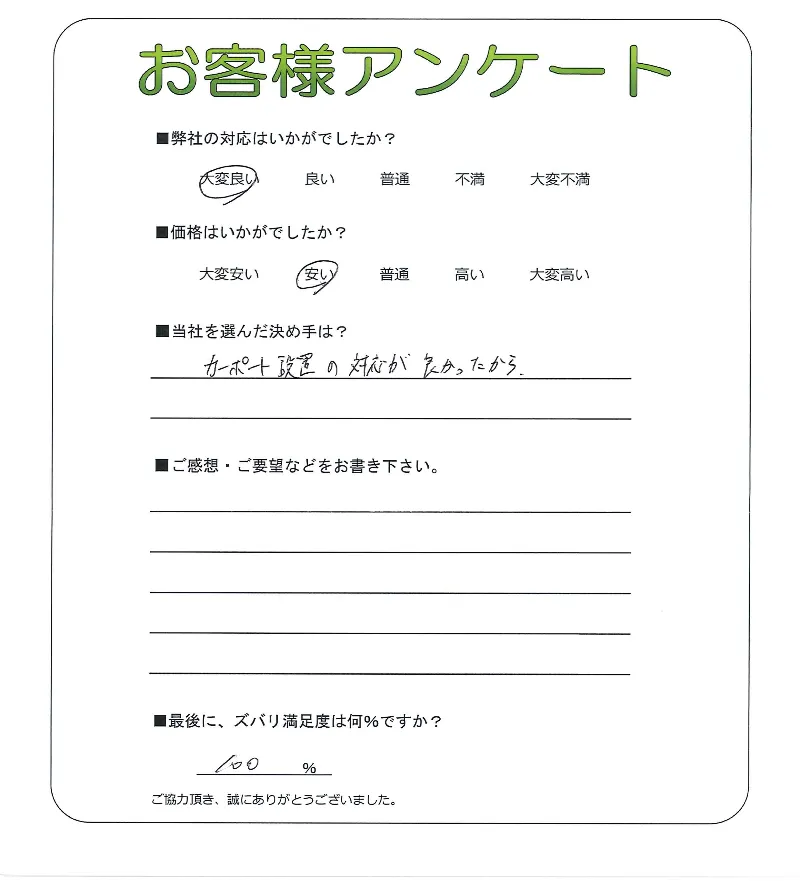 お客様アンケート
■弊社の対応はいかがでしたか？
大変良い 良い 普通 不満 大変不満
■価格はいかがでしたか？
大変安い 安い 普通 高い 大変高い
■当社を選んだ決め手は？
カーポート設置の対応が良かったから.
■ご感想・ご要望などをお書き下さい。
■最後に、ズバリ満足度は何%ですか？
100 %
ご協力頂き、誠にありがとうございました。